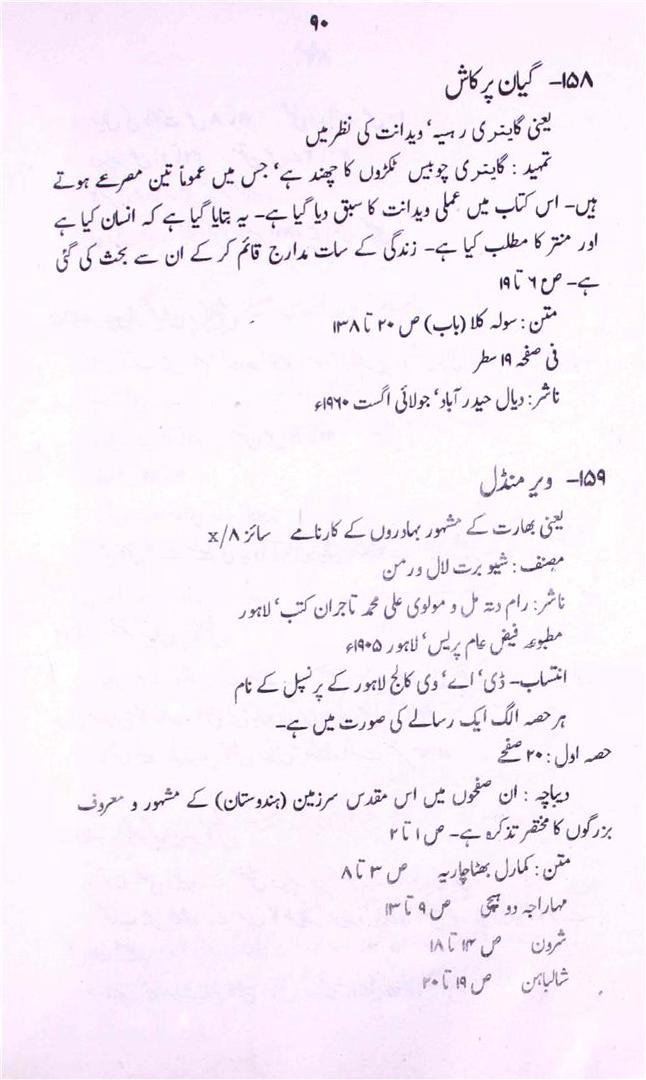 ۹۰
۱۵۸- گیان پرکاش
یعنی گایتری رہسیہ‘ ویدانت کی نظر میں
تمہید : گایتری چوبیس ٹکڑوں کا چھند ہے‘ جس میں عموماً تین مصرعے ہوتے
ہیں- اس کتاب میں عملی ویدانت کا سبق دیا گیا ہے- یہ بتایا گیا ہے کہ انسان کیا ہے
اور منتر کا مطلب کیا ہے- زندگی کے سات مدارج قائم کر کے ان سے بحث کی گئی
ہے- ص ۶ تا ۱۹
متن : سولہ کلا (باب) ص ۲۰ تا ۱۳۸
فی صفحہ ۱۹ سطر
ناشر : دیال حیدر آباد‘ جولائی اگست ۱۹۶۰ء
۱۵۹- ویر منڈل
یعنی بھارت کے مشہور بہادروں کے کارنامے سائز x/۸
مصنف : شیو برت لال ورمن
ناشر : رام دتہ مل و مولوی علی محمد تاجران کتب‘ لاہور
مطبوعہ فیض عام پریس‘ لاہور ۱۹۰۵ء
انتساب- ڈی‘ اے‘ وی کالج لاہور کے پرنسپل کے نام
ہر حصہ الگ ایک رسالے کی صورت میں ہے-
حصہ اول : ۲۰ صفحے
دیباچہ : ان صفحوں میں اس مقدس سرزمین (ہندوستان) کے مشہور و معروف
بزرگوں کا مختصر تذکرہ ہے- ص ۱ تا ۲
متن : کمارل بھٹاچاریہ ص ۳ تا ۸
مہاراجہ دوھیچی ص ۹ تا ۱۳
شرون ص ۱۴ تا ۱۸
شالباہن ص ۱۹ تا ۲۰